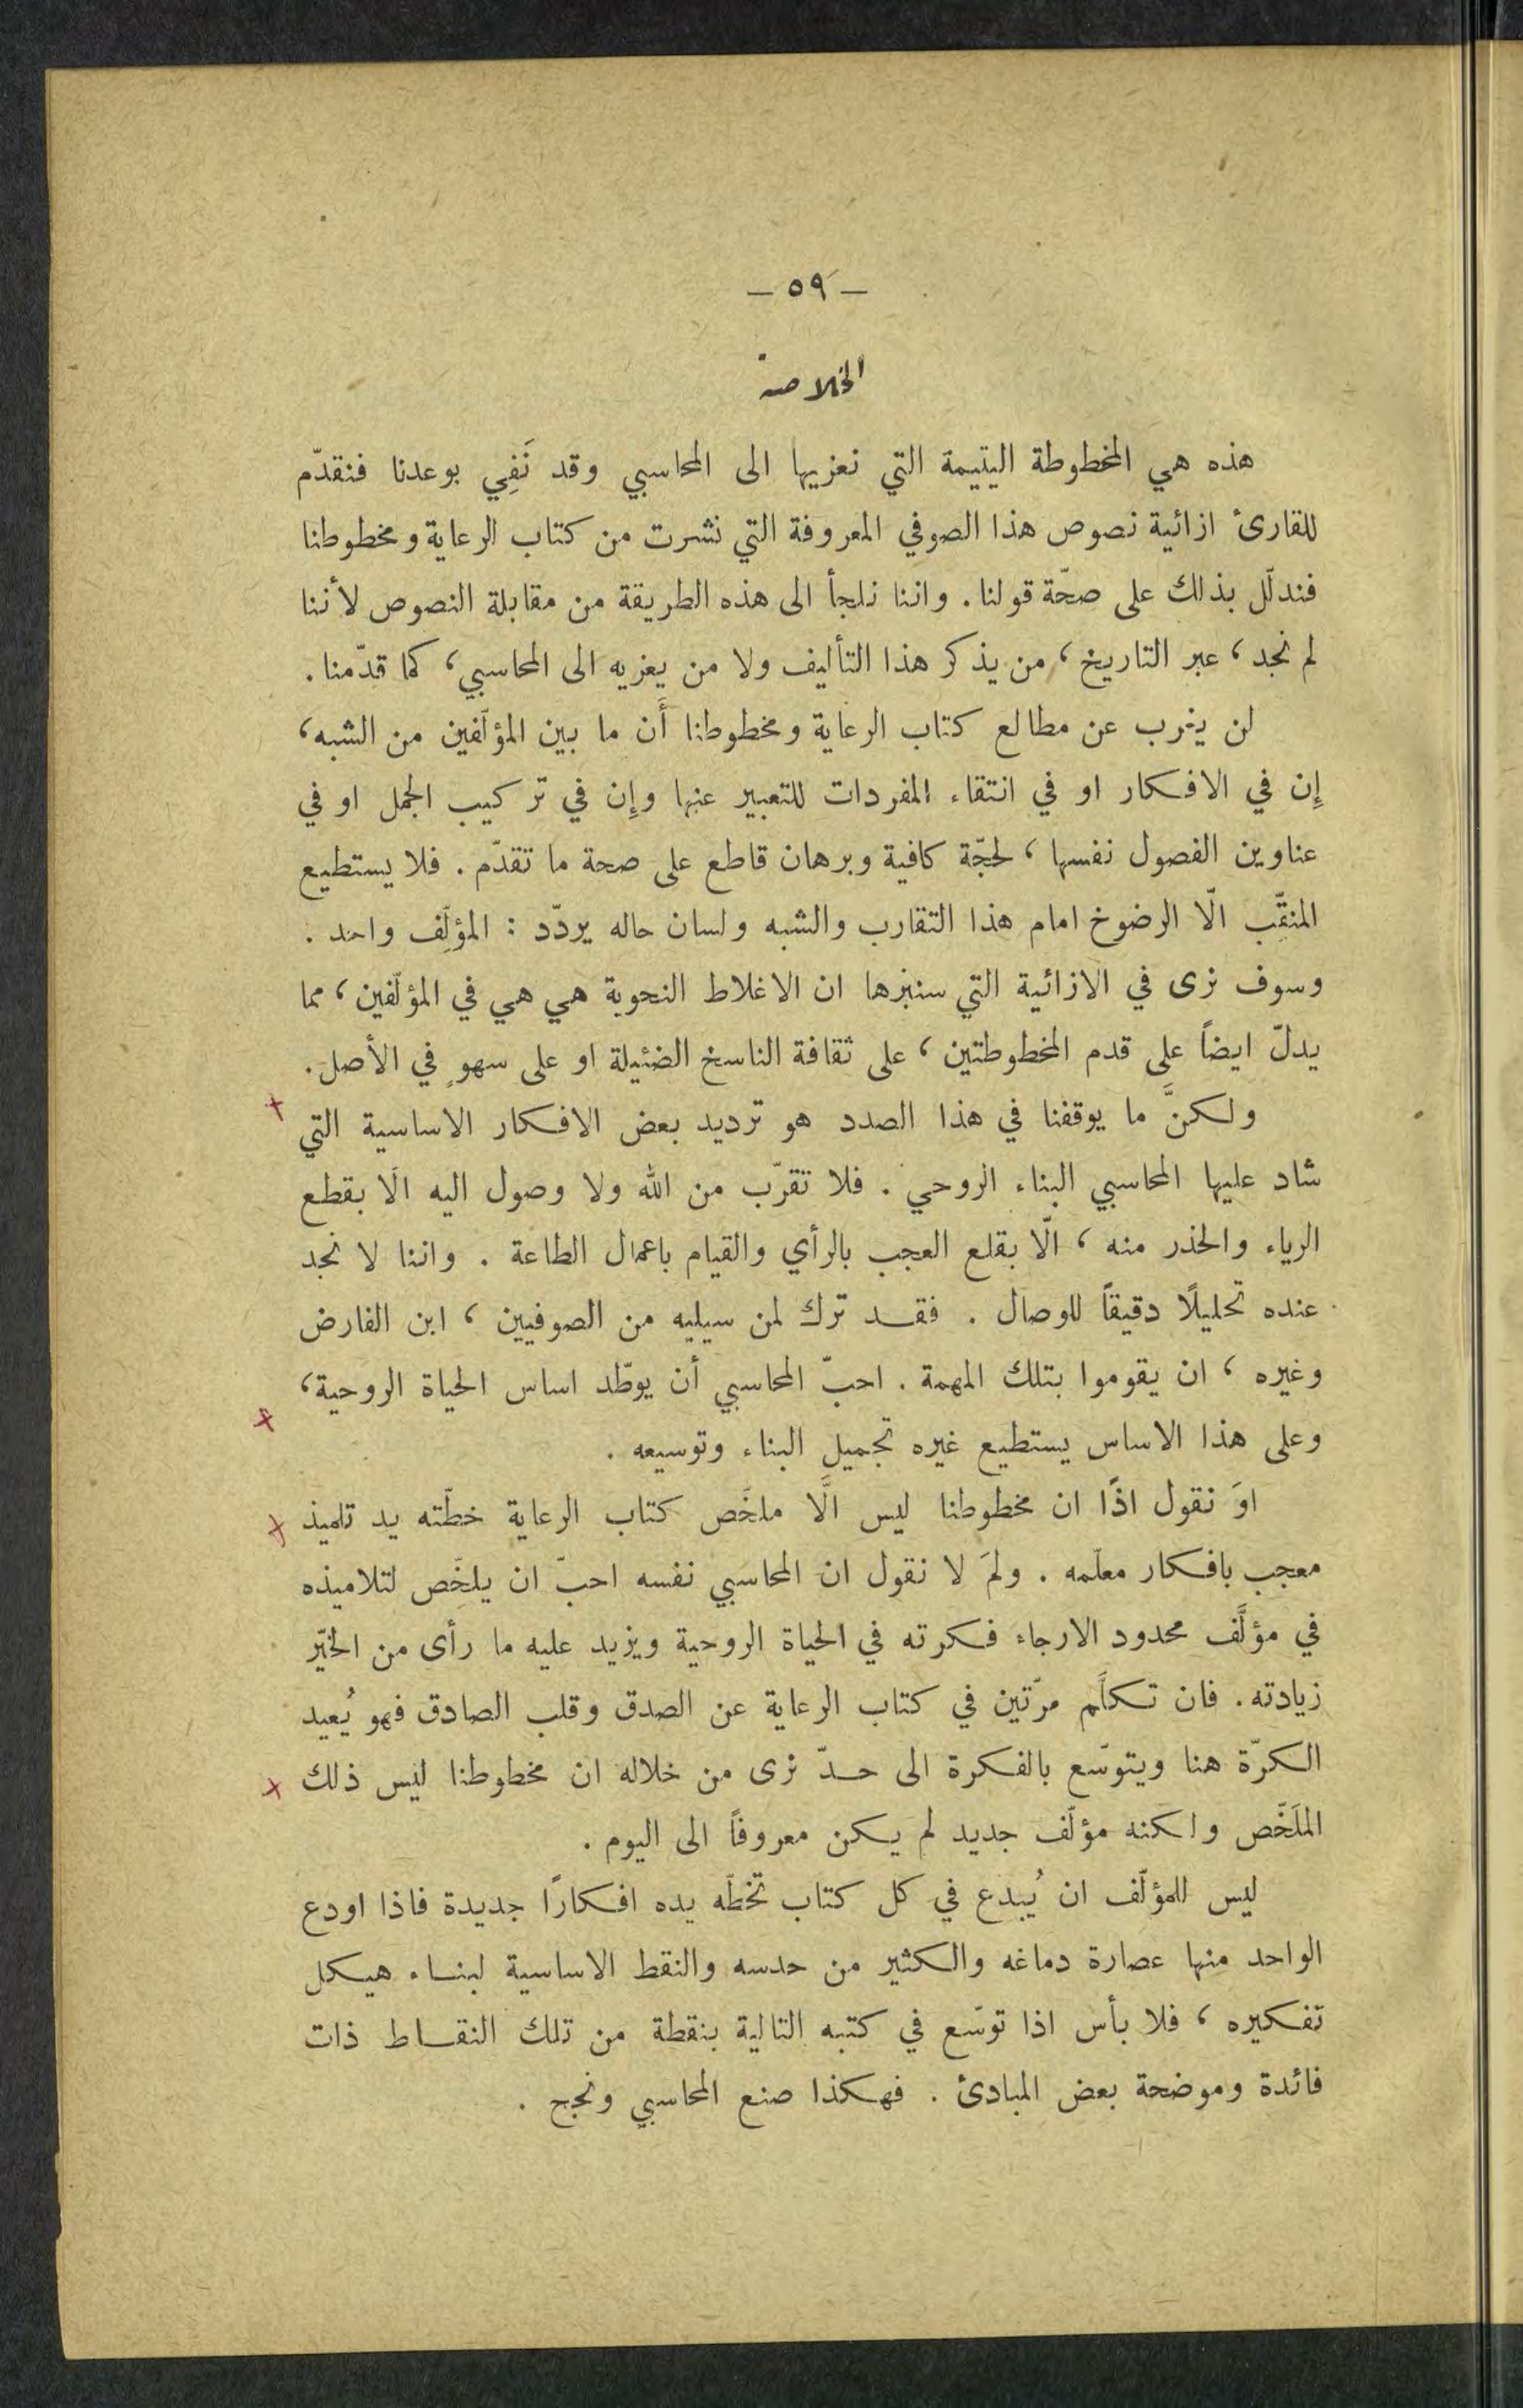 — ٥٩ —
الخلاصة
هذه هي المخطوطة اليتيمة التي نعزيها الى المحاسبي وقد نَفِي بوعدنا فنقدّم
للقارئ ازائية نصوص هذا الصوفي المعروفة التي نشرت من كتاب الرعاية ومخطوطنا
فندلّل بذلك على صحّة قولنا . واننا نلجأ الى هذه الطريقة من مقابلة النصوص لأننا
لم نجد ، عبر التاريخ ، من يذكر هذا التأليف ولا من يعزيه الى المحاسبي ، كما قدّمنا .
لن يغرب عن مطالع كتاب الرعاية ومخطوطنا أَن ما بين المؤلّفين من الشبه ،
إِن في الافكار او في انتقاء المفردات للتعبير عنها وإِن في تركيب الجمل او في
عناوين الفصول نفسها ، لحجّة كافية وبرهان قاطع على صحة ما تقدّم . فلا يستطيع
المنقّب الّا الرضوخ امام هذا التقارب والشبه ولسان حاله يردّد : المؤلِّف واحد .
وسوف نرى في الازائية التي سنبرزها ان الاغلاط النحوية هي هي في المؤلّفين ، مما
يدلّ ايضاً على قدم المخطوطتين ، على ثقافة الناسخ الضئيلة او على سهوٍ في الأصل .
ولكنَّ ما يوقفنا في هذا الصدد هو ترديد بعض الافكار الاساسية التي
شاد عليها المحاسبي البناء الروحي . فلا تقرّب من الله ولا وصول اليه الّا بقطع
الرياء والحذر منه ، الّا بقلع العجب بالرأي والقيام باعمال الطاعة . واننا لا نجد
عنده تحليلًا دقيقاً للوصال . فقد ترك لمن سيليه من الصوفيين ، ابن الفارض
وغيره ، ان يقوموا بتلك المهمة . احبّ المحاسبي أن يوطّد اساس الحياة الروحية ،
وعلى هذا الاساس يستطيع غيره تجميل البناء وتوسيعه .
اوَ نقول اذًا ان مخطوطنا ليس الَّا ملخَّص كتاب الرعاية خطّته يد تلميذ
معجب بافكار معلّمه . ولمَ لا نقول ان المحاسبي نفسه احبّ ان يلخَّص لتلاميذه
في مؤلَّف محدود الارجاء فكرته في الحياة الروحية ويزيد عليه ما رأى من الخيّر
زيادته . فان تكلَّم مرّتين في كتاب الرعاية عن الصدق وقلب الصادق فهو يُعيد
الكرّة هنا ويتوسّع بالفكرة الى حدّ نرى من خلاله ان مخطوطنا ليس ذلك
الملَخّص ولكنه مؤلّف جديد لم يكن معروفاً الى اليوم .
ليس للمؤلّف ان يُبدع في كل كتاب تخطّه يده افكارًا جديدة فاذا اودع
الواحد منها عصارة دماغه والكثير من حدسه والنقط الاساسية لبناء هيكل
تفكيره ، فلا بأس اذا توسّع في كتبه التالية بنقطة من تلك النقاط ذات
فائدة وموضحة بعض المبادئ . فهكذا صنع المحاسبي ونجح .